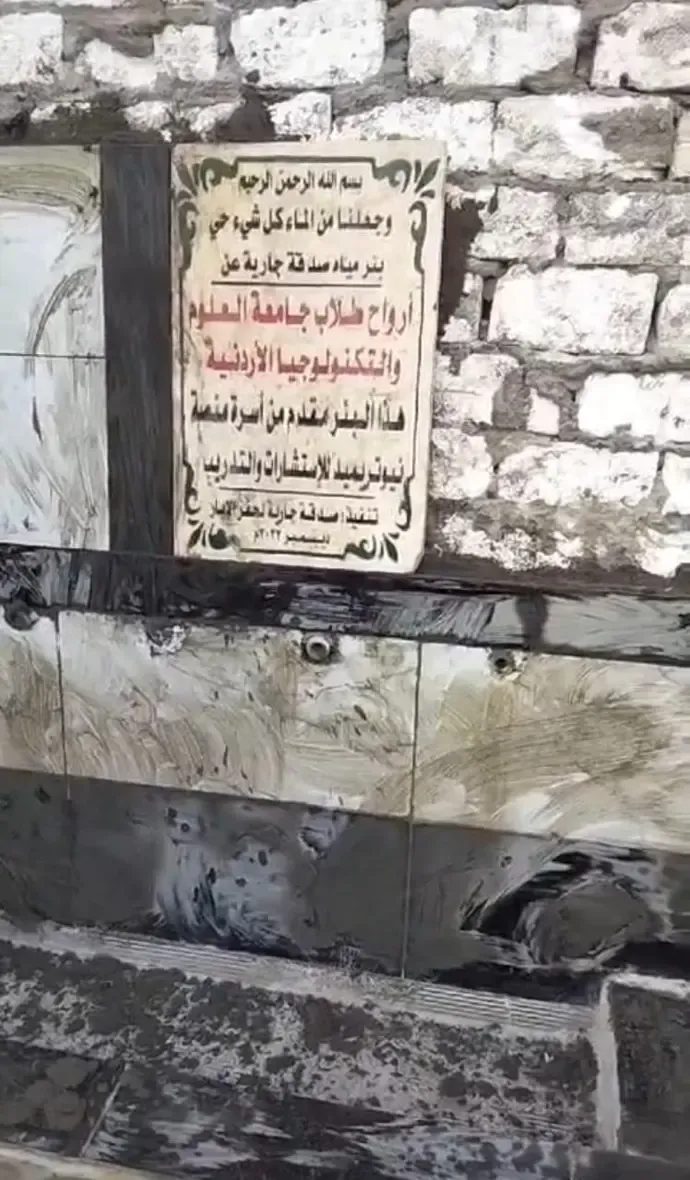 بسم الله الرحمن الرحيم
وجعلنا من الماء كل شيء حي
بئر مياه صدقة جارية عن
أرواح طلاب جامعة العلوم
والتكنولوجيا الأردنية
هذا البئر مقدم من أسرة منصة
نيوتريميد للإستشارات والتدريب
تنفيذ: صدقة جارية لحفر الابار
ديسمبر ٢٠٢٢م